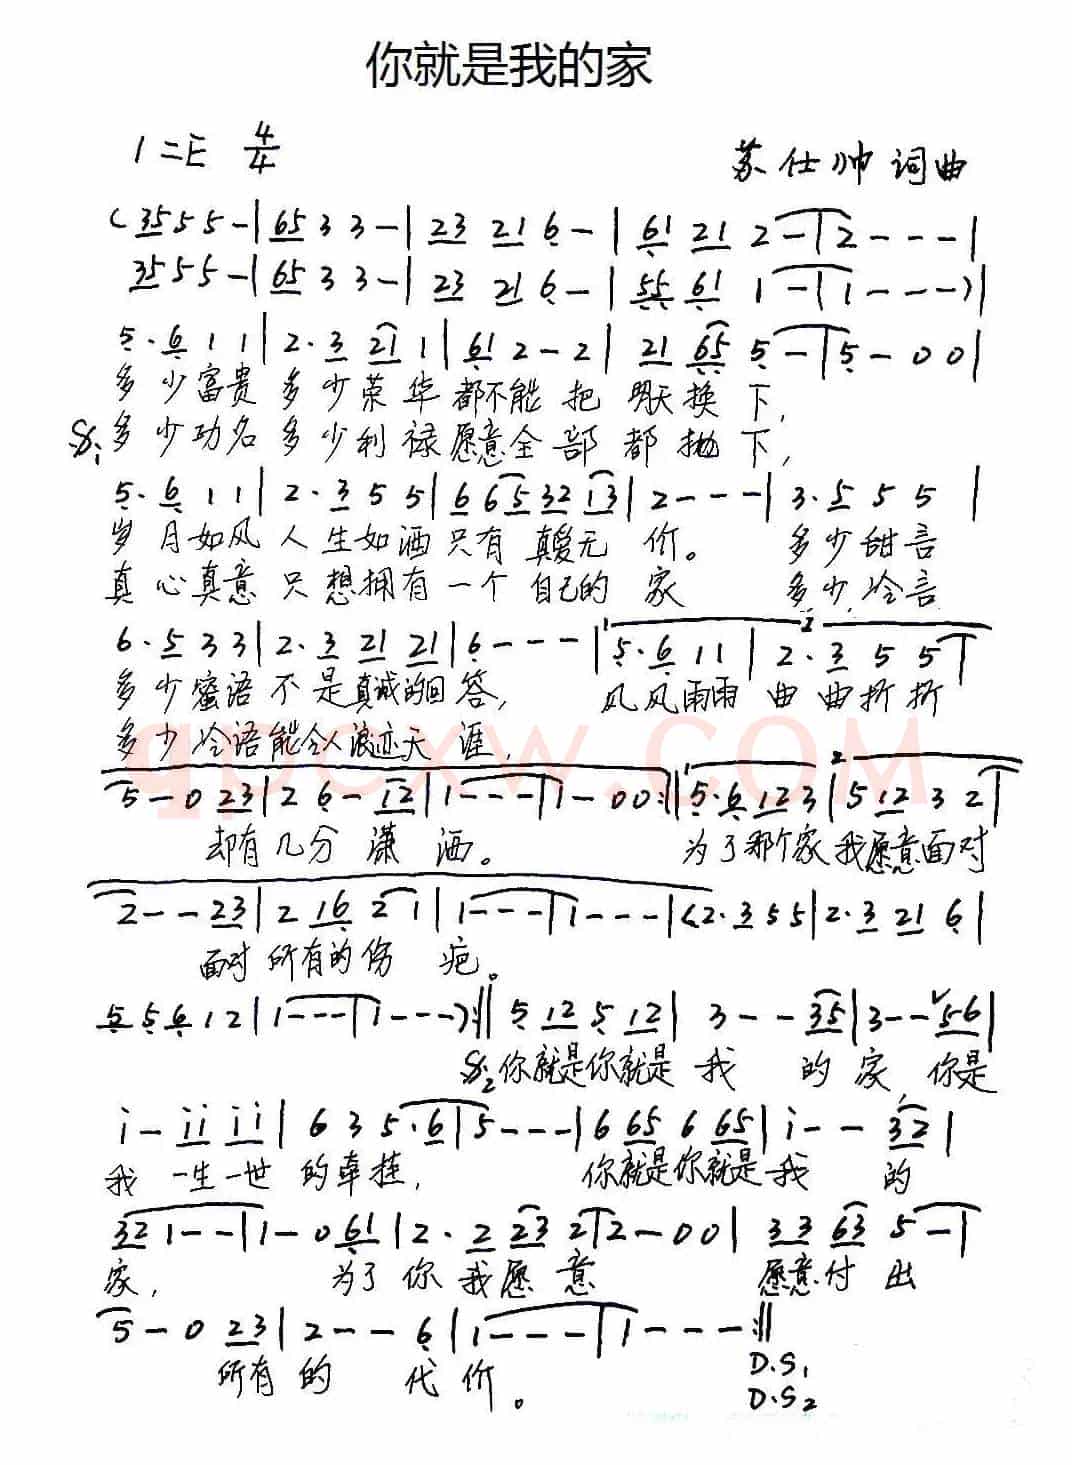 你就是我的家
1=E 4/4
苏仕帅 词曲
(35 5 5 - | 65 3 3 - | 23 21 6 - | 61 21 2 - | 2 - - - |
35 5 5 - | 65 3 3 - | 23 21 6 - | 55 61 1 - | 1 - - -) |
5. 6 1 1 | 2. 3 21 1 | 61 2 - 2 | 21 65 5 - | 5 - 0 0 |
多少富贵 多少荣华都不能 把 明天换 下,
多少功名 多少利禄愿意全部 都 抛 下,
5. 6 1 1 | 2. 3 5 5 | 6 6 5 32 13 | 2 - - - | 3. 5 5 5 |
岁月如风 人生如酒只有 真爱无 价。 多少甜言
真心真意 只想拥有一个 自己的 家 多少冷言
6. 5 3 3 | 2. 3 21 21 | 6 - - - | 5. 6 1 1 | 2. 3 5 5 |
多少蜜语 不是真诚的回答, 风风雨雨 曲曲折折
多少冷语能令人浪迹天 涯,
5 - 0 23 | 2 6 - 12 | 1 - - - | 1 - 0 0 :‖ 5. 6 12 3 | 5 12 3 2 |
却有几分 潇 洒。 为了那个家我愿意面对
2 - - 23 | 2 16 2 1 | 1 - - - | 1 - - - | (2. 3 5 5 | 2. 3 21 6 |
面对所有的伤 疤。
5 5 6 1 2 | 1 - - - | 1 - - -) :‖ 5 12 5 12 | 3 - - 35 | 3 - - 56 |
你就是你就是 我 的 家, 你是
i - ii ii | 6 3 5. 6 | 5 - - - | 6 65 6 65 | i - - 32 |
我 一生一世 的牵挂, 你就是你就是我 的
32 1 - - | 1 - 0 61 | 2. 2 23 2 | 2 - 0 0 | 33 63 5 - |
家, 为了你 我愿 意 愿意付 出
5 - 0 23 | 2 - - 6 | 1 - - - | 1 - - - :‖
所有的 代 价。
D.S1
D.S2
qpcxw.COM